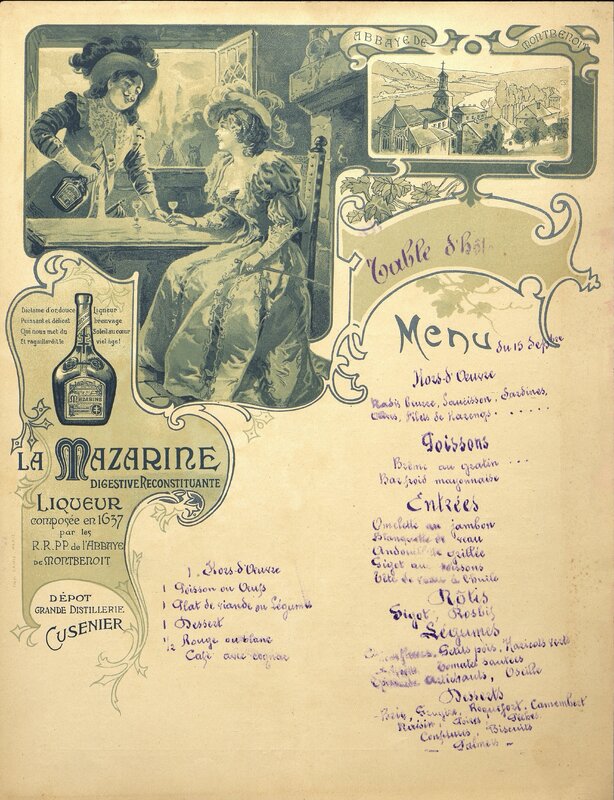 ABBAYE DE MONTBENOIT
Table d'hôte
Menu du 13 Septbre
Hors-d'Œuvre
Radis Beurre, Saucisson, Sardines,
Filets de Harengs
Poissons
Brême au gratin
Bar froid mayonnaise
Entrées
Omelette au jambon
Blanquette de veau
Andouillette grillée
Gigot aux
Tête de veau à l'huile
Rôtis
Gigot, Rosbif
Légumes
Petits pois, Haricots verts
Tomates sautées
Artichauts, Oseille
Desserts
Brie, Gruyère, Roquefort, Camembert
Raisin, Poires, Pêches
Confitures, Biscuits
Palmers
Liqueur
Puissant et délicat breuvage
Qui nous met du Soleil au cœur
Et ragaillardit le vieil âge!
MAZARINE
LA MAZARINE
DIGESTIVE RECONSTITUANTE
LIQUEUR
composée en 1637
par les
R.R.P.P. de l'ABBAYE
DE MONTBENOIT
DÉPOT
GRANDE DISTILLERIE
CUSENIER
1 Hors-d'Œuvre
1 Poisson ou Œufs
1 Plat de viande ou Légumes
1 Dessert
½ Rouge ou blanc
Café avec cognac